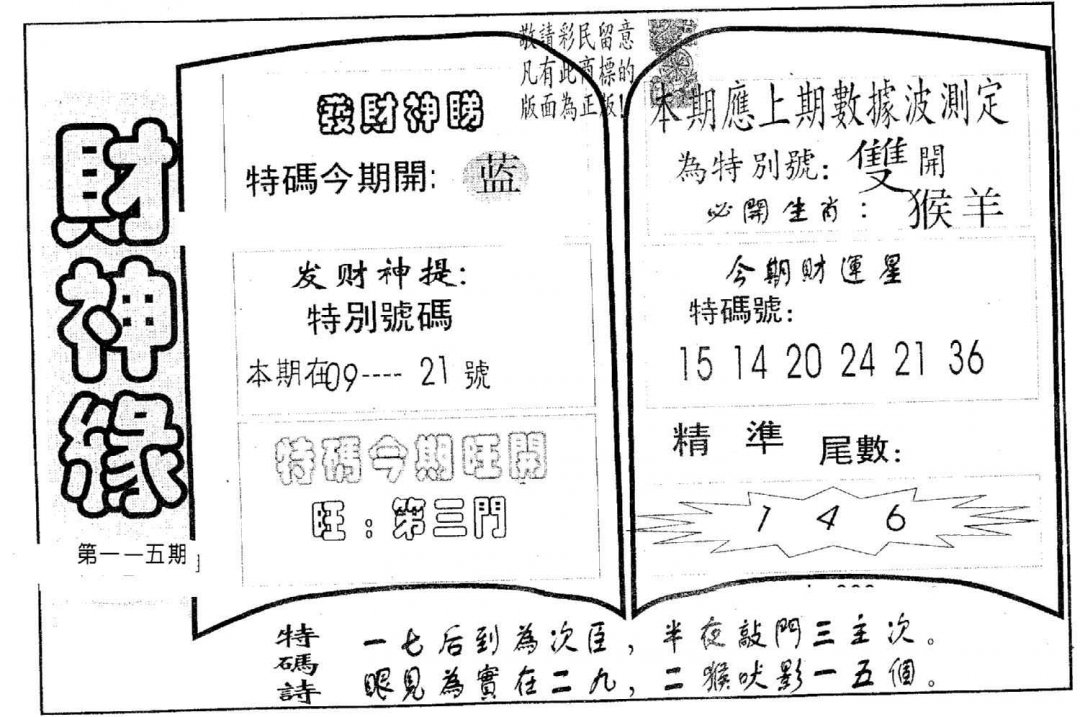 敬請彩民留意
凡有此商標的
版面為正版!
財神緣
第一一五期
發財神睇
特碼今期開: 藍
发财神提:
特別號碼
本期在09---- 21 號
特碼今期旺開
旺:第三門
本期應上期數據波測定
為特別號: 雙開
必開生肖: 猴羊
今期財運星
特碼號:
15 14 20 24 21 36
精準 尾數:
1 4 6
特碼詩
一七后到為次臣,半夜敲門三主次。
眼見為實在二九,二猴吠影一五個。